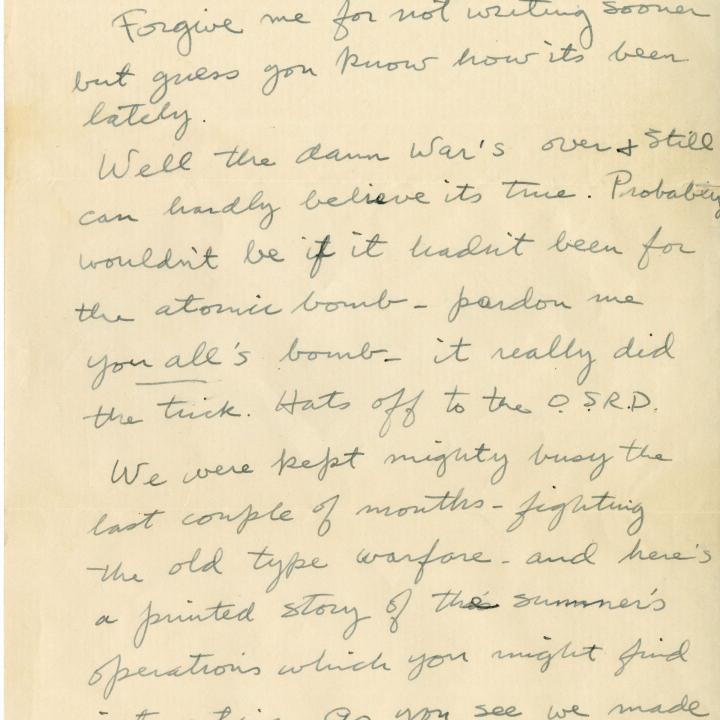 Forgive me for not writing sooner
but guess you know how its been
lately.
Well the damn War's over & still
can hardly believe its true. Probably
wouldn't be if it hadn't been for
the atomic bomb - pardon me
you all's bomb - it really did
the trick. Hats off to the O.S.R.D.
We were kept mighty busy the
last couple of months - fighting
the old type warfare - and here's
a printed story of the summer's
operations which you might find
As you see we made